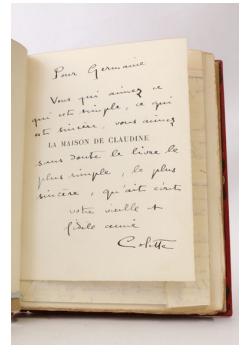 Pour Germaine
Vous qui aimez ce
qui est simple, ce qui
est sincère, vous aimez
LA MAISON DE CLAUDINE
sans doute le livre le
plus simple, le plus
sincère, qu'ait écrit
votre vieille +
fidèle amie
Colette